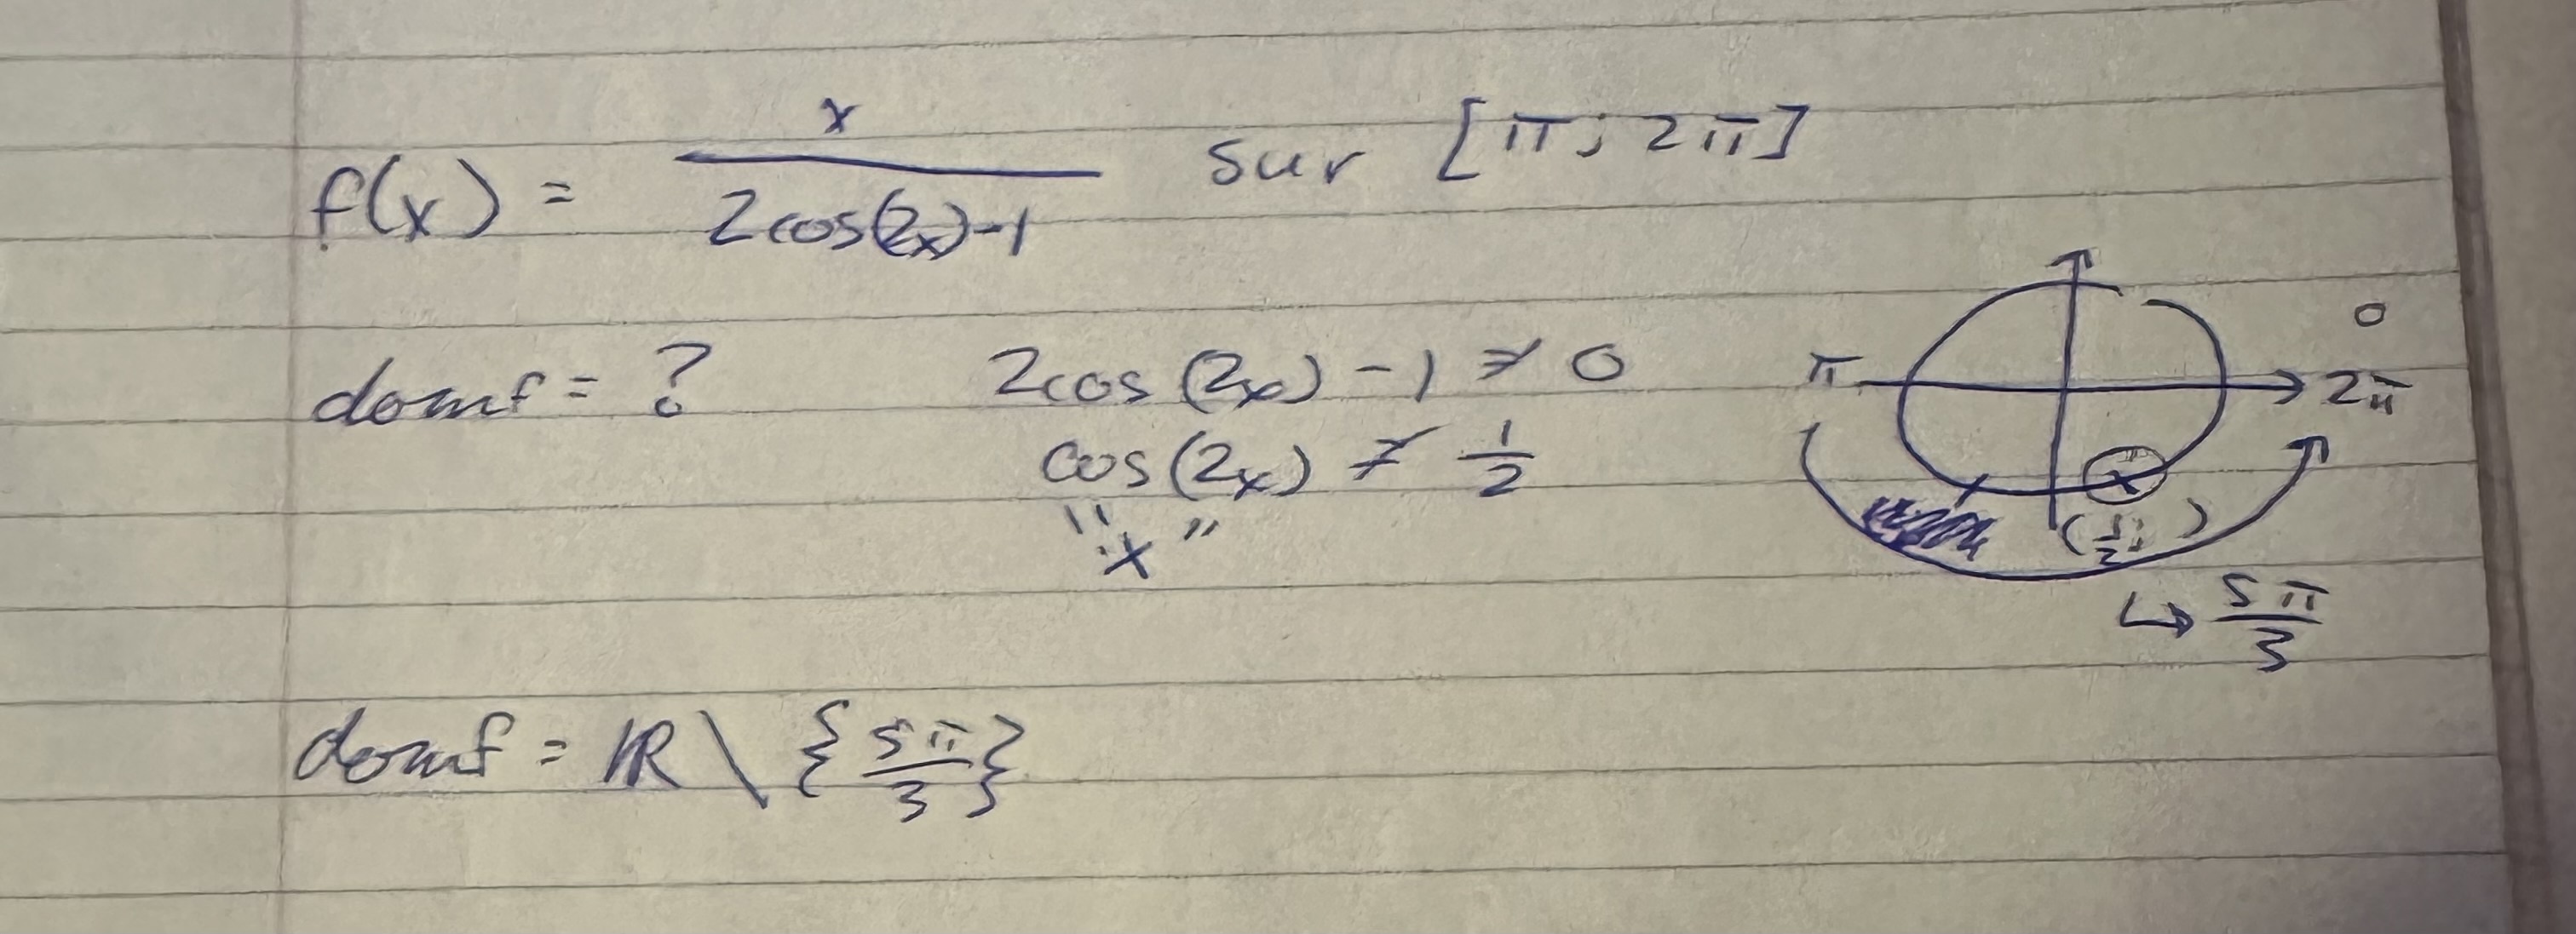 f(x) = x / (2cos(2x)-1) sur [π; 2π]
domf = ? 2cos(2x) - 1 ≠ 0
cos(2x) ≠ 1/2
"x"
π 0 2π
(1/2; )
↳ 5π/3
domf = ℝ \ {5π/3}